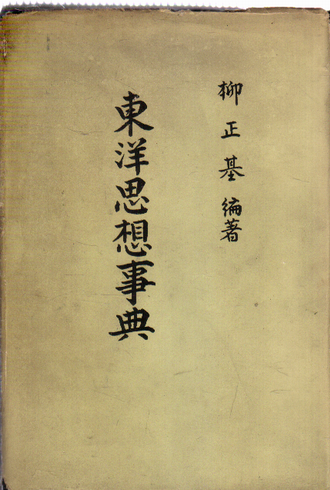 柳正基編著
東洋思想事典